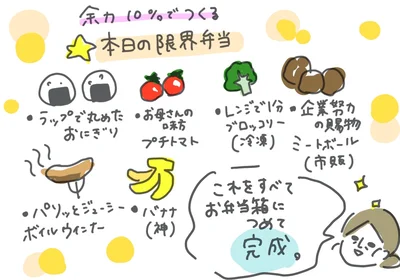 余力10%でつくる
本日の限界弁当
・ラップで丸めた
おにぎり
・お母さんの
味方
プチトマト
・レンジで1分
ブロッコリー
(冷凍)
・企業努力
の賜物
ミートボール
(市販)
・パリッとジューシー
ボイルウィンナー
・バナナ
(神)
これをすべて
お弁当箱に
つめて
完成。